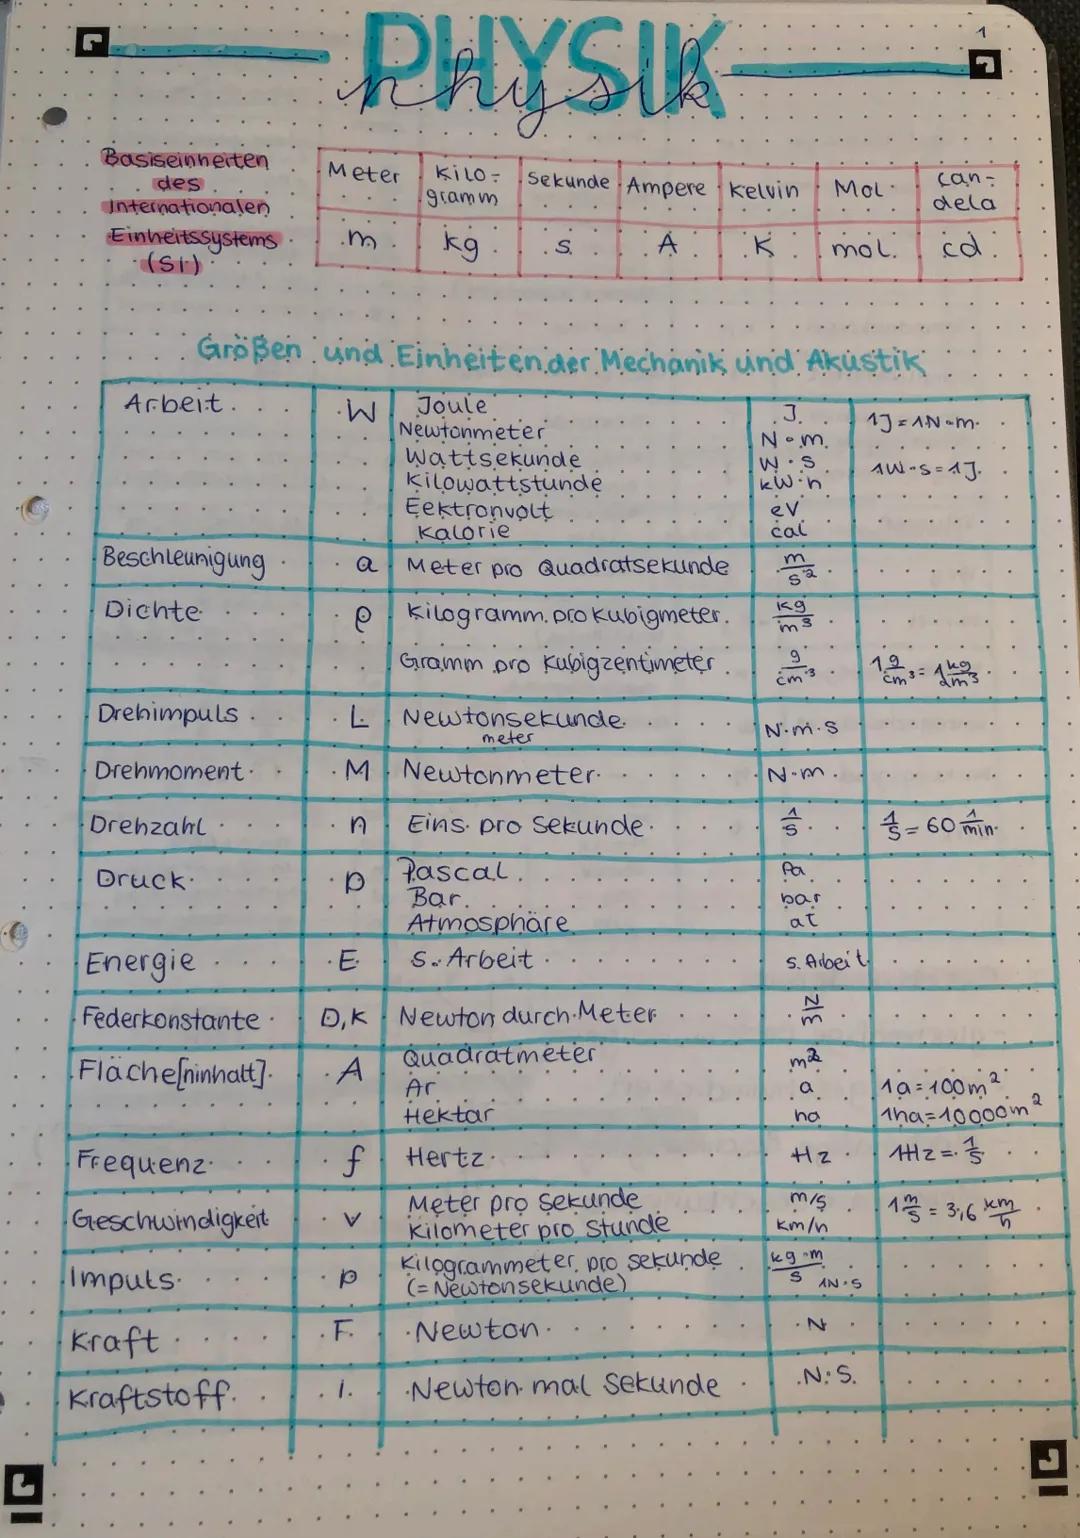 1
PHYSIK
physik
Basiseinheiten
des
Internationalen
Einheitssystems
(SI)
Meter Kilo- Sekunde Ampere Kelvin Mol can-
gramm dela
m kg s A K mol cd
Größen und Einheiten der Mechanik und Akustik
Arbeit W Joule J 1J=1N·m
Newtonmeter N·m
Wattsekunde W·s 1W·s=1J
Kilowattstunde kW·h
Eektronvolt eV
Kalorie cal
Beschleunigung a Meter pro Quadratsekunde m/s²
Dichte ρ Kilogramm pro Kubigmeter kg/m³
Gramm pro Kubigzentimeter g/cm³ 1 g/cm³ = 1 kg/dm³
Drehimpuls L Newtonsekunde N·m·s
meter
Drehmoment M Newtonmeter N·m
Drehzahl n Eins pro Sekunde 1/s 1/s = 60 1/min
Druck p Pascal Pa
Bar bar
Atmosphäre at
Energie E s. Arbeit s. Arbeit
Federkonstante D,K Newton durch Meter N/m
Fläche[ninhalt] A Quadratmeter m²
Ar a 1a=100m²
Hektar ha 1ha=10000m²
Frequenz f Hertz Hz 1Hz = 1/s
Geschwindigkeit v Meter pro Sekunde m/s 1 m/s = 3,6 km/h
Kilometer pro Stunde km/h
Impuls p Kilogrammeter pro sekunde kg·m/s
(=Newtonsekunde) 1N·s
Kraft F Newton N
Kraftstoff I Newton mal Sekunde N·S